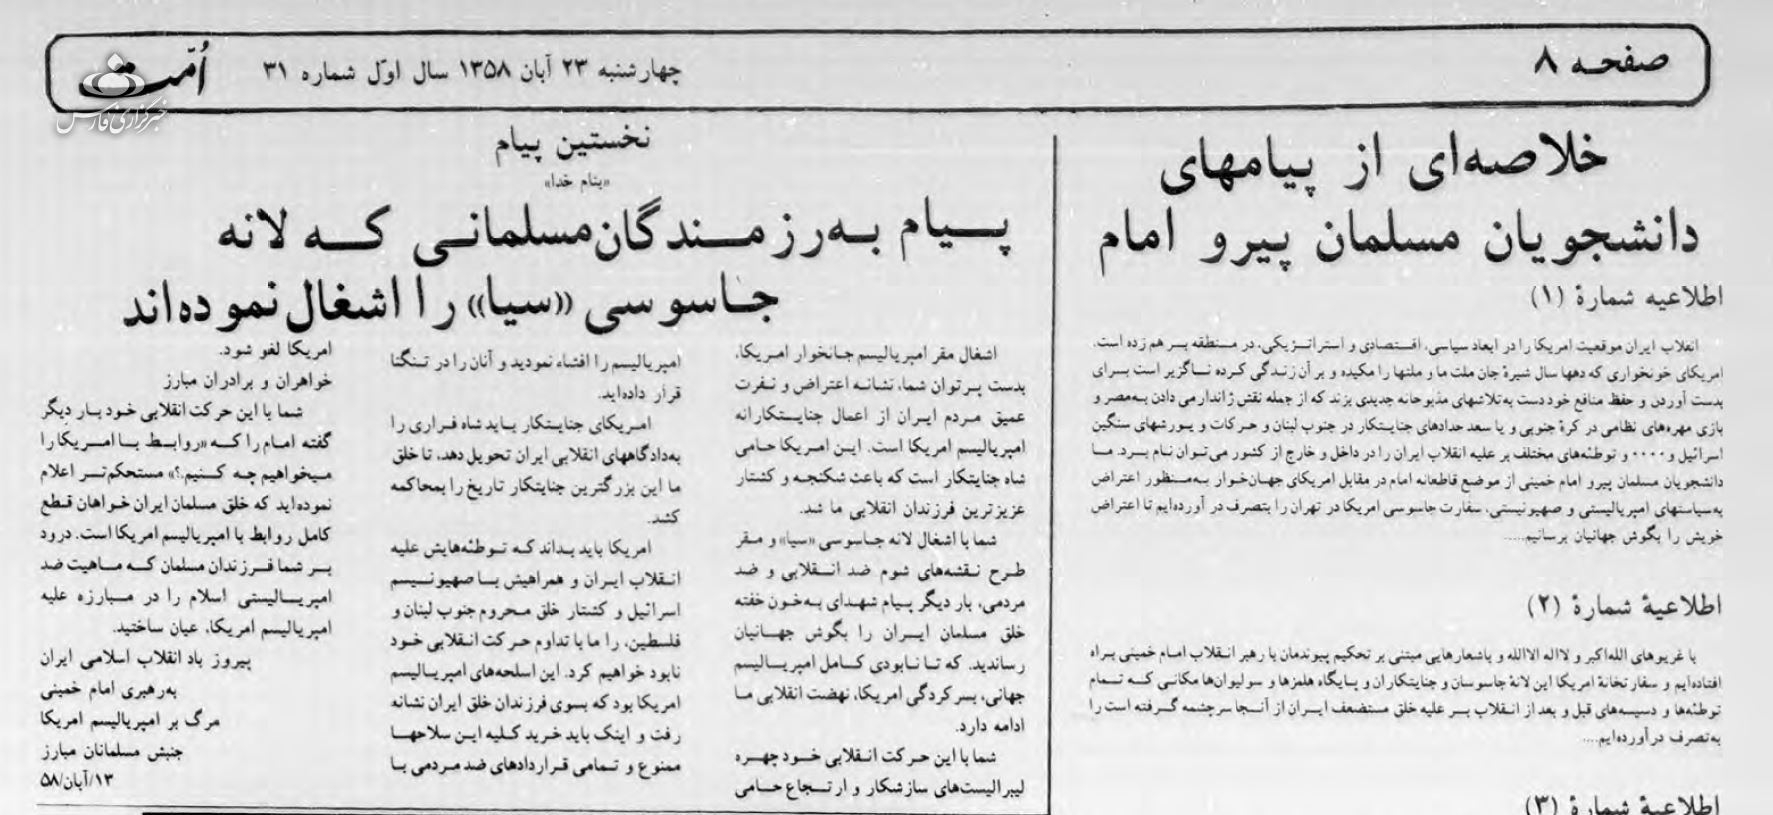 صفحه ۸
چهارشنبه ۲۳ آبان ۱۳۵۸ سال اوّل شماره ۳۱
اُمّت
خبرگزاری فارس
خلاصه‌ای از پیامهای
دانشجویان مسلمان پیرو امام
اطلاعیه شمارهٔ (۱)
انقلاب ایران موقعیت امریکا را در ابعاد سیاسی، اقتصادی و استراتژیکی، در منطقه بر هم زده است.
امریکای خونخواری که دهها سال شیرهٔ جان ملت ما و ملتها را مکیده و بر آن زندگی کرده ناگزیر است برای
بدست آوردن و حفظ منافع خود دست به‌تلاشهای مذبوحانه جدیدی بزند که از جمله نقش ژاندارمی دادن به‌مصر و
بازی مهره‌های نظامی در کرهٔ جنوبی و یا سعد حدادهای جنایتکار در جنوب لبنان و حرکات و یورشهای سنگین
اسرائیل و ۰۰۰۰ و توطئه‌های مختلف بر علیه انقلاب ایران را در داخل و خارج از کشور می‌توان نام برد. ما
دانشجویان مسلمان پیرو امام خمینی از موضع قاطعانه امام در مقابل امریکای جهان‌خوار به‌منظور اعتراض
به‌سیاستهای امپریالیستی و صهیونیستی، سفارت جاسوسی امریکا در تهران را بتصرف در آورده‌ایم تا اعتراض
خویش را بگوش جهانیان برسانیم.....
اطلاعیهٔ شمارهٔ (۲)
با غریوهای الله‌اکبر و لااله الاالله و باشعارهایی مبتنی بر تحکیم پیوندمان با رهبر انقلاب امام خمینی براه
افتاده‌ایم و سفارتخانهٔ امریکا این لانهٔ جاسوسان و جنایتکاران و پایگاه هلمزها و سولیوان‌ها مکانی که تمام
توطئه‌ها و دسیسه‌های قبل و بعد از انقلاب بر علیه خلق مستضعف ایران از آنجا سرچشمه گرفته است را
به‌تصرف درآورده‌ایم....
اطلاعیهٔ شمارهٔ (۳)
نخستین پیام
«بنام خدا»
پیام به‌رزمندگان‌مسلمانی که لانه
جاسوسی «سیا» را اشغال نموده‌اند
اشغال مقر امپریالیسم جانخوار امریکا،
بدست پرتوان شما، نشانه اعتراض و نفرت
عمیق مردم ایران از اعمال جنایتکارانه
امپریالیسم امریکا است. این امریکا حامی
شاه جنایتکار است که باعث شکنجه و کشتار
عزیزترین فرزندان انقلابی ما شد.
شما با اشغال لانه جاسوسی «سیا» و مقر
طرح نقشه‌های شوم ضد انقلابی و ضد
مردمی، بار دیگر پیام شهدای به‌خون خفته
خلق مسلمان ایران را بگوش جهانیان
رساندید. که تا نابودی کامل امپریالیسم
جهانی، بسرکردگی امریکا، نهضت انقلابی ما
ادامه دارد.
شما با این حرکت انقلابی خود چهره
لیبرالیست‌های سازشکار و ارتجاع حامی
امپریالیسم را افشاء نمودید و آنان را در تنگنا
قرار داده‌اید.
امریکای جنایتکار باید شاه فراری را
به‌دادگاههای انقلابی ایران تحویل دهد، تا خلق
ما این بزرگترین جنایتکار تاریخ را بمحاکمه
کشد.
امریکا باید بداند که توطئه‌هایش علیه
انقلاب ایران و همراهیش با صهیونیسم
اسرائیل و کشتار خلق محروم جنوب لبنان و
فلسطین، را ما با تداوم حرکت انقلابی خود
نابود خواهیم کرد. این اسلحه‌های امپریالیسم
امریکا بود که بسوی فرزندان خلق ایران نشانه
رفت و اینک باید خرید کلیه این سلاحها
ممنوع و تمامی قراردادهای ضد مردمی با
امریکا لغو شود.
خواهران و برادران مبارز
شما با این حرکت انقلابی خود بار دیگر
گفته امام را که «روابط با امریکا را
میخواهیم چه کنیم.؟» مستحکم‌تر اعلام
نموده‌اید که خلق مسلمان ایران خواهان قطع
کامل روابط با امپریالیسم امریکا است. درود
بر شما فرزندان مسلمان که ماهیت ضد
امپریالیستی اسلام را در مبارزه علیه
امپریالیسم امریکا، عیان ساختید.
پیروز باد انقلاب اسلامی ایران
به‌رهبری امام خمینی
مرگ بر امپریالیسم امریکا
جنبش مسلمانان مبارز
۱۳/آبان/۵۸